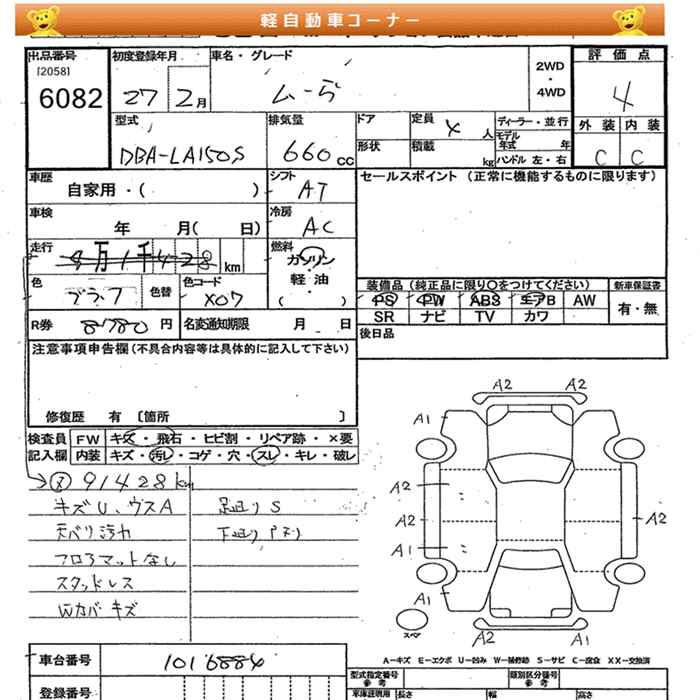 軽自動車コーナー
出品番号 初度登録年月 車名・グレード 2WD・4WD 評価点
[2058]
6082 27 2月 ムーヴ 4
型式 排気量 ドア 定員 4人 ディーラー・並行 外装 内装
DBA-LA150S 660cc 形状 積載 kg モデル年式 年 ハンドル 左・右 C C
車歴 シフト セールスポイント (正常に機能するものに限ります)
自家用・( ) AT
車検 冷房
年 月( 日) AC
走行 燃料
9万1千428km ガソリン・軽油・( )
色 色替 色コード 装備品 (純正品に限り○をつけてください) 新車保証書
ブラック X07 PS PW ABS エアB AW 有・無
SR ナビ TV カワ
R券 8780円 名変通知期限 月 日 後日品
注意事項申告欄 (不具合内容等は具体的に記入して下さい)
修復歴 有 [箇所 ]
検査員 FW キズ・飛石・ヒビ割・リペア跡・×要
記入欄 内装 キズ・汚レ・コゲ・穴・スレ・キレ・破レ
91428km
キズU、ウスA 足廻りS
天バリ汚れ 下廻りサビ
フロアマットなし
スタッドレス
Wカバキズ
A2 A2
A1
A2
A2 A2
A1
A1 A1
A2 A1
スペア
A-キズ E-エクボ U-凹み W-補修跡 S-サビ C-腐食 XX-交換済
車台番号 1016884 型式指定番号 参考 類別区分番号 参考
登録番号 車庫証明用 長さ 幅 高さ